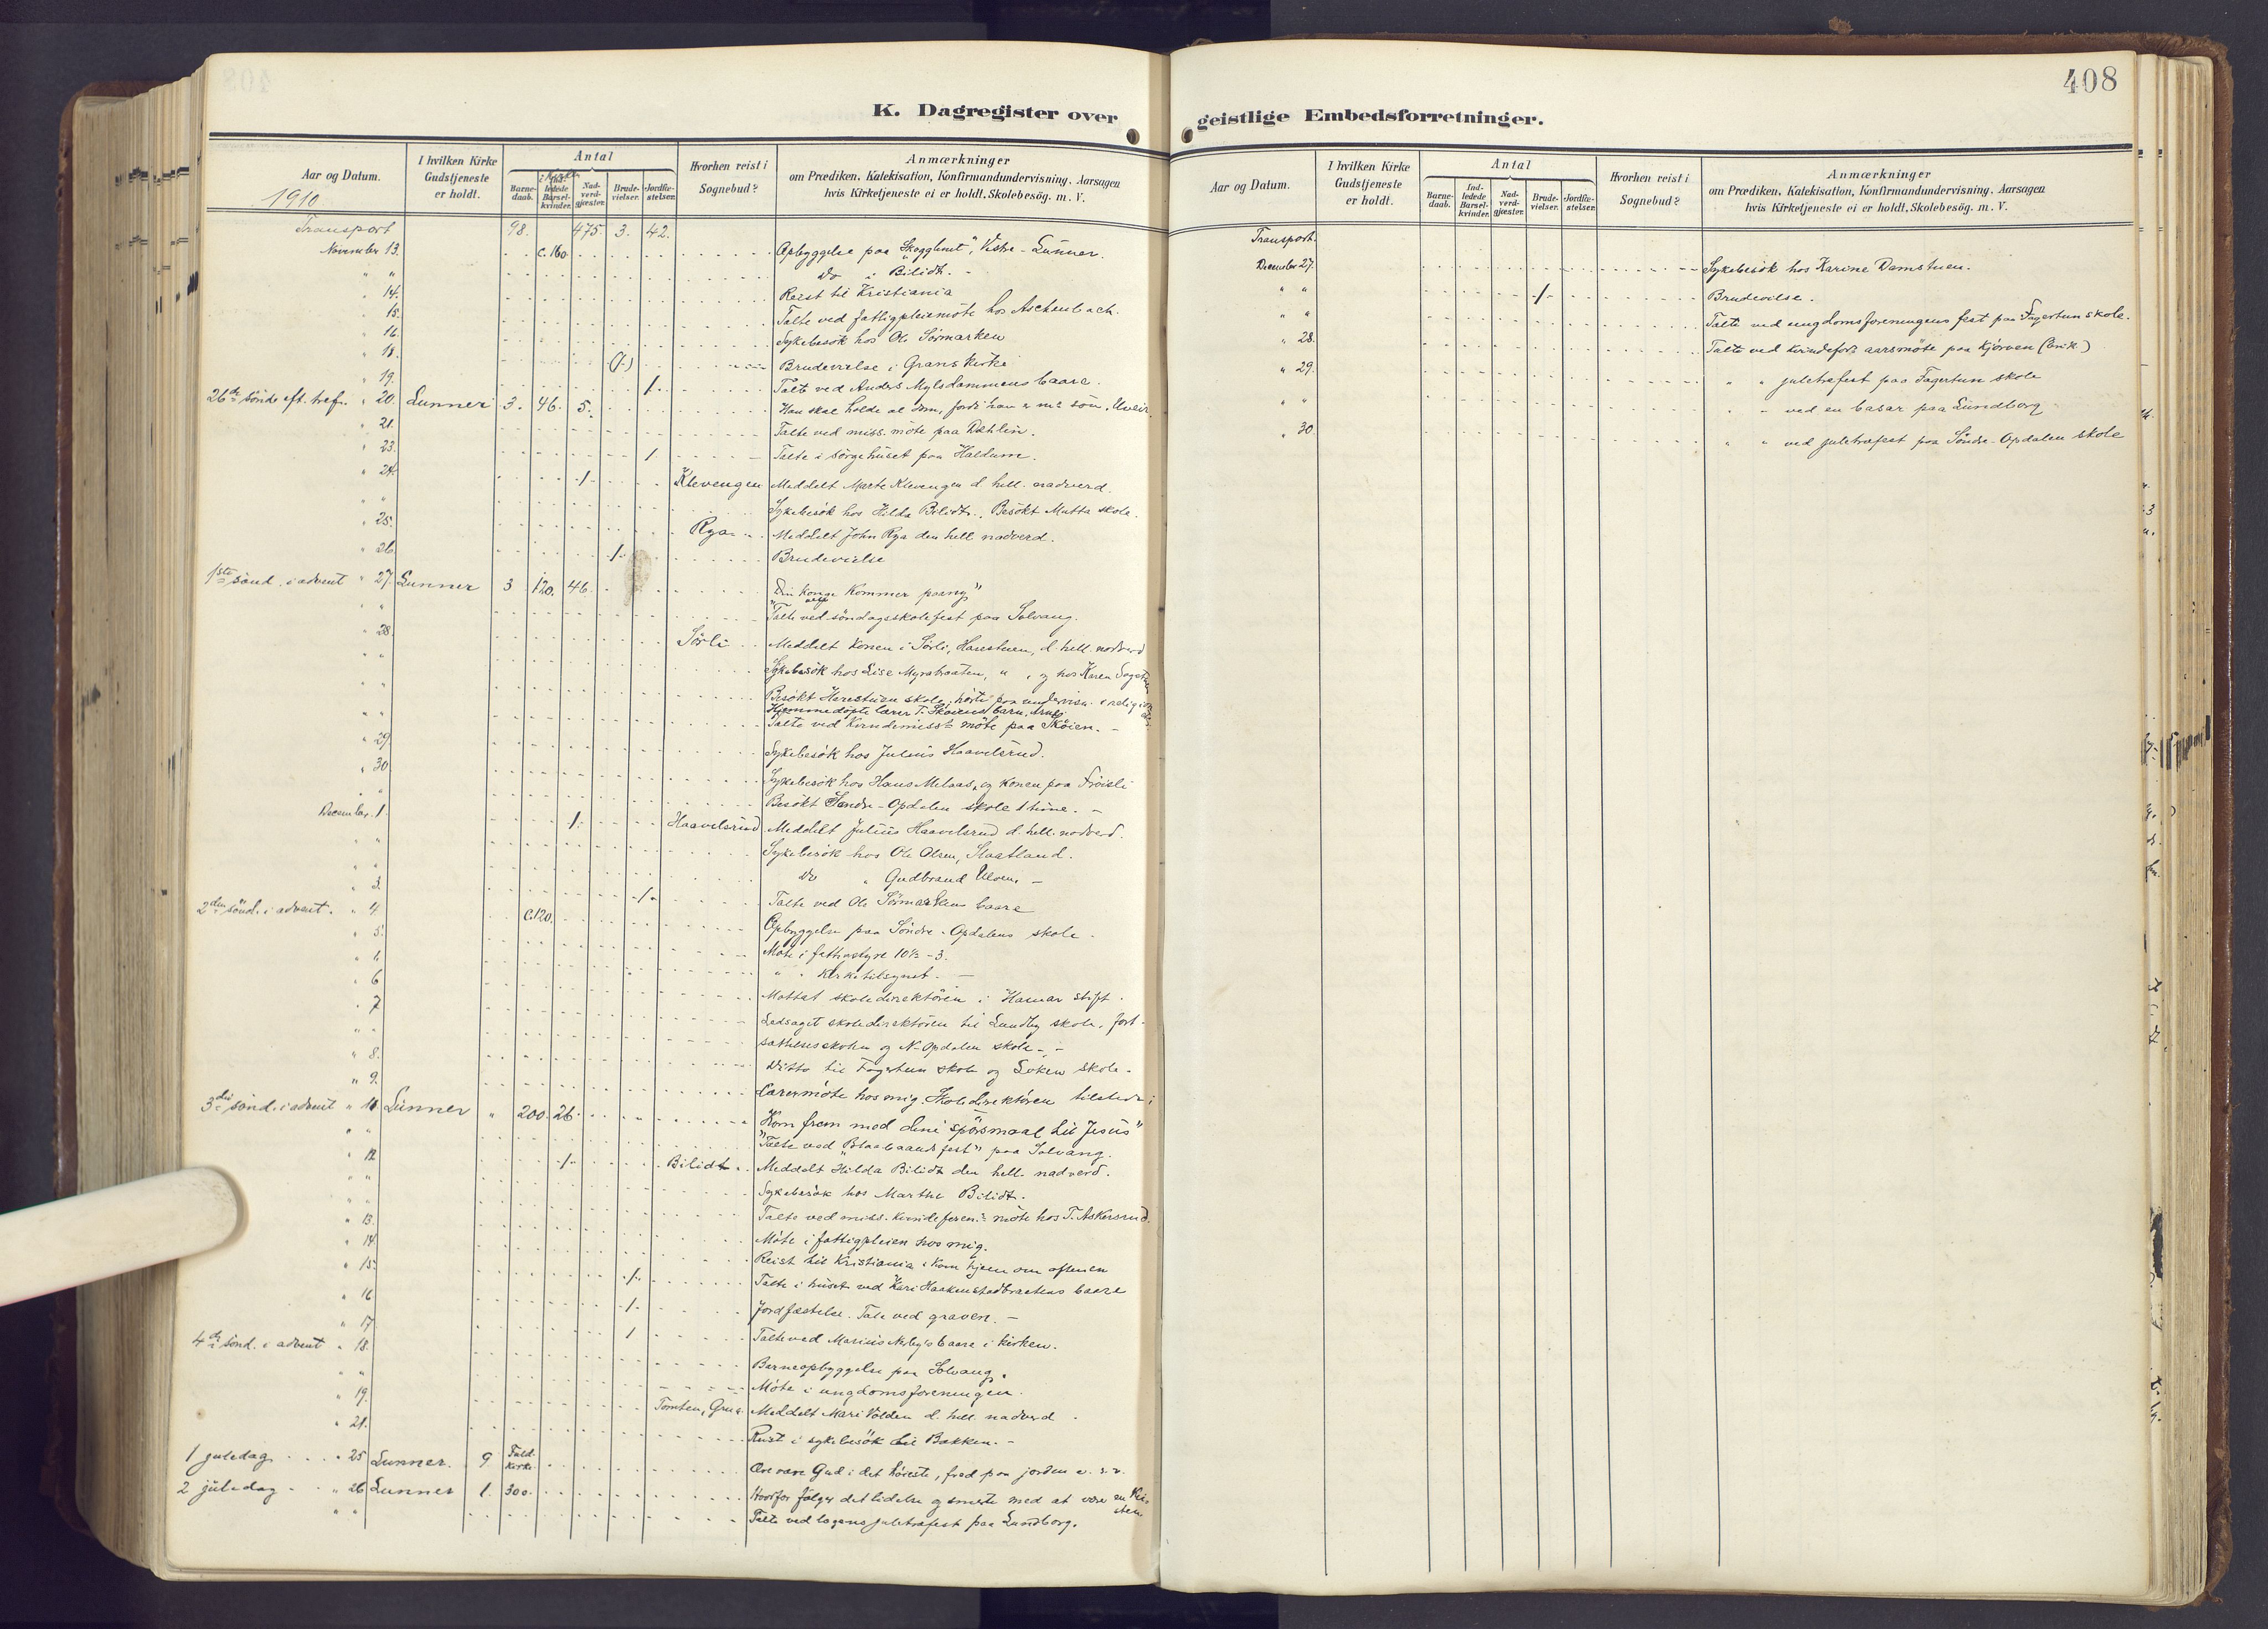 408
K. Dagregister over
Aar og Datum.
I hvilken Kirke Gudstjeneste er holdt.
Antal
Barnedaab.
Indledede Barselkvinder.
Nadverdgjæster.
Brudevielser.
Jordfæstelser.
Hvorhen reist i Sognebud?
Anmærkninger
om Prædiken. Katekisation, Konfirmandundervisning. Aarsagen
hvis Kirketjeneste ei er holdt, Skolebesög. m. V.
1910
Transport 98. 475. 3. 42.
November 13. c. 160. Opbyggelse paa "Skogglimt", Vestre-Lunner.
" " Do i Bilidt. -
" 14. Reist til Kristiania
" 15. Talte ved fattigpleiemöte hos Aschenbach.
" 16. Sykebesök hos Ole Sörmarken
" 18. (1.) Brudevielse i Grans kirke
" 19. 1. Talte ved Anders Myladammens baare.
26de sönd. eft. tref. " 20. Lunner 3. 46. 5. Han skal holde al dom, fordi han er m.s sön. Uveir.
" 21. Talte ved miss. möte paa Dæhlin.
" 23. 1. Talte i sörgehuset paa Haldum.
" 24. 1. Klevengen Meddelt Marte Klevengen d. hell. nadverd.
" " Sykebesök hos Hilda Bilidt. Besökt Mutta skole.
" 25. Rya Meddelt John Rya den hell nadverd.
" 26. 1. Brudevielse
1ste sönd. i advent " 27. Lunner 3 120. 46. "Din konge kommer paany"
" " Talte ved söndagsskolefest paa Solvang.
" 28. Sörli Meddelt konen i Sörli, Harestuen, d. hell. nadverd
" " Sykebesök hos Lise Myrabraaten, " , og hos Karen
" " Besökt Harestuen skole, hörte paa undervisn. i religion
Hjemmedöpte lærer T. Sköiens barn,
" " Talte ved Kvindemiss.s möte paa Sköien. -
" 29. Sykebesök hos Julius Haavelsrud.
" 30. Sykebesök hos Hans Melaas, og konen paa Fröisli
" " Besökt Söndre-Opdalen skole 1 time. -
December. 1. 1. Haavelsrud Meddelt Julius Haavelsrud d. hell. nadverd.
" " Sykebesök hos Ole Olsen, Slaatland.
" " Do " Gudbrand Ulven -
" 3. 1. Talte ved Ole Sörmarkens baare
2den sönd. i advent. " 4. C. 120. Opbyggelse paa Söndre-Opdalens skole.
" 5. Möte i fattigstyre 10½-3.
" " " " Kirketilsynet. -
" 6 Mottat skoledirektören i Hamar stift.
" 7 Ledsaget skoledirektören til Lundby skole, fort-
" " sættelsesskolen og N-Opdalen skole. -
" 8. Ditto til Fagertun skole og Loken skole.
" 9. Lærermöte hos mig. Skoledirektören tilstede
3die sönd. i advent " 11 Lunner " 200. 26. "Kom frem med dine spörsmaal til Jesus"
" " Talte ved "Blaabaandsfest" paa Solvang.
" 12 1. Bilidt Meddelt Hilda Bilidt den hell. nadverd.
" " Sykebesök hos Marthe Bilidt.
" " Talte ved miss. kvindeforen.s möte hos T. Askersrud.
" 13. Möte i fattigpleien hos mig.
" 14. Reist til Kristiania. Kom hjem om aftenen
" 15. 1. Talte i huset ved Kari Haakenstadbraatens baare
" 16 1. Jordfæstelse. Tale ved graven. -
" 17. 1 Talte ved Marius baare i kirken.
4de sönd. i advent " 18. Barneopbyggelse paa Solvang.
" " Möte i ungdomsforeningen.
" 19. Tomten, Grua. Meddelt Mari Volden d. hell. nadverd.
" 21. Reist i sykebesök til Bakken. -
1 juledag. " 25 Lunner. 9 Fuld kirke. Ære være Gud i det höieste, fred paa jorden o. s. v.
2 juledag " 26 Lunner 1. 300. Hvorfor fölger det lidelse og smerte med at være en kristen
" " Talte ved logens juletræfest paa Lundborg.
geistlige Embedsforretninger.
Aar og Datum.
I hvilken Kirke Gudstjeneste er holdt.
Antal
Barnedaab.
Indledede Barselkvinder.
Nadverdgjæster.
Brudevielser.
Jordfæstelser.
Hvorhen reist i Sognebud?
Anmærkninger
om Prædiken. Katekisation, Konfirmandundervisning. Aarsagen
hvis Kirketjeneste ei er holdt, Skolebesög. m. V.
Transport.
December 27. Sykebesök hos Karine Damstuen.
" " 1. Brudevielse.
" " Talte ved ungdomsforeningens fest paa Fagertun skole.
" 28. Talte ved kvindefor.s aarsmöte paa Kjörven
" 29. " " juletræfest paa Fagertun skole
" " " - ved en basar paa Lundborg
" 30. " " ved juletræfest paa Söndre-Opdalen skole